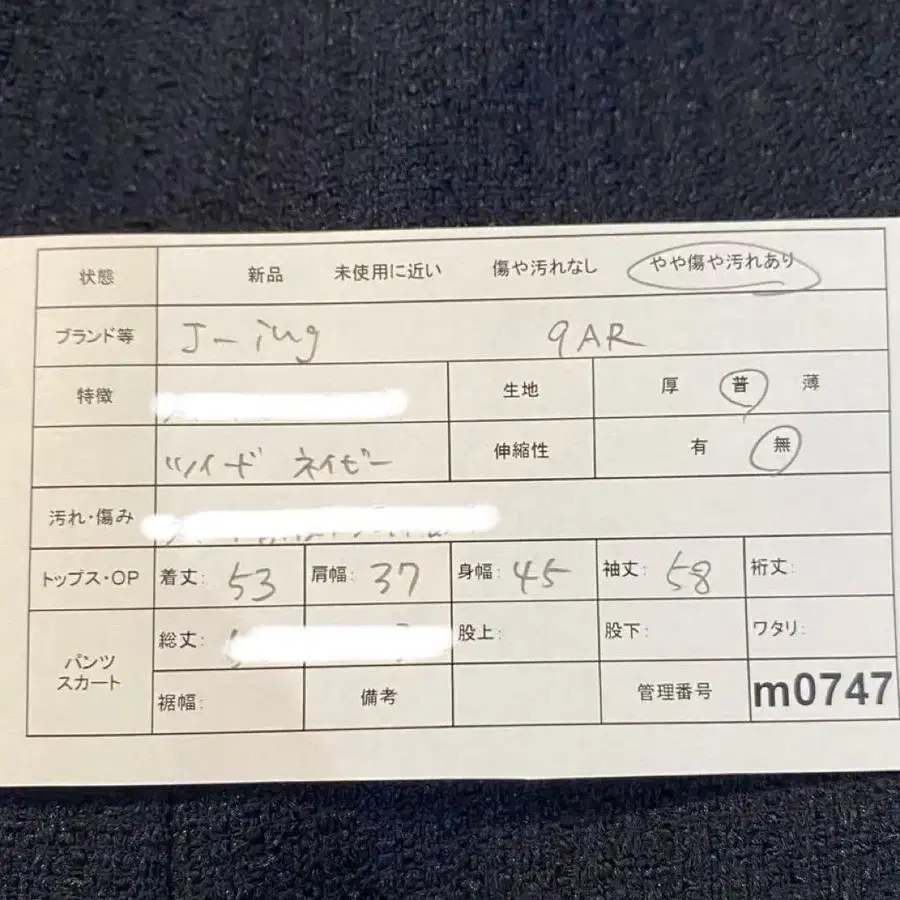 状態 新品 未使用に近い 傷や汚れなし やや傷や汚れあり
ブランド等 J-ing 9AR
特徴 生地 厚 普 薄
ツイード ネイビー 伸縮性 有 無
汚れ・傷み
トップス・OP 着丈: 53 肩幅: 37 身幅: 45 袖丈: 58 裄丈:
パンツ スカート 総丈: 股上: 股下: ワタリ:
裾幅: 備考 管理番号 m0747